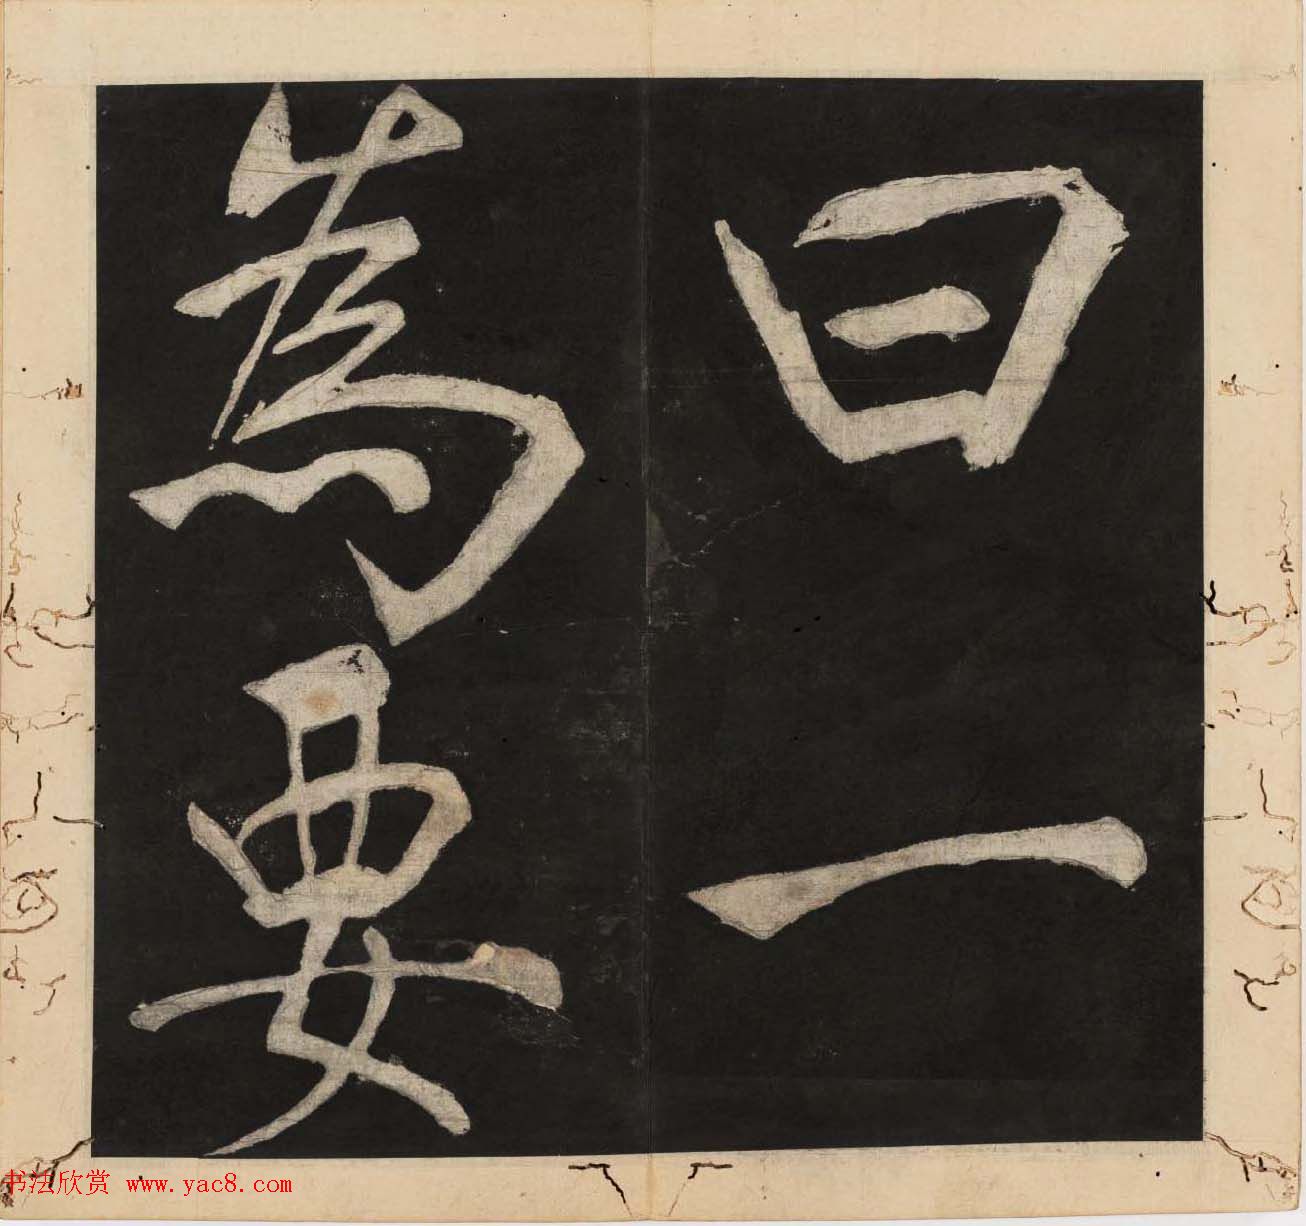 曰一
為要
书法欣赏 www.yac8.com